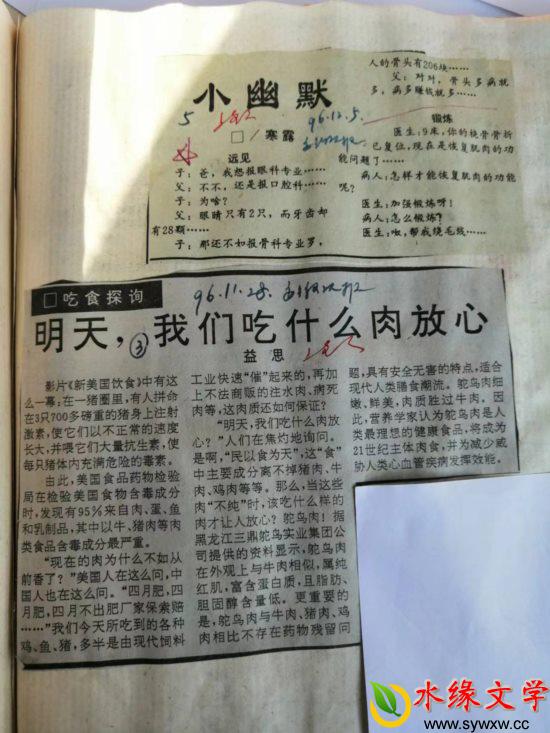 小幽默
5
96.12.5.
□/寒露
远见
子：爸，我想报眼科专业……
父：不不，还是报口腔科……
子：为啥？
父：眼睛只有2只，而牙齿却
有28颗……
子：那还不如报骨科专业罗，
人的骨头有206块……
父：对对，骨头多病就
多，病多赚钱就多……
锻炼
医生：9床，你的桡骨骨折
已复位，现在是恢复肌肉的功
能问题了……
病人：怎样才能恢复肌肉的功能
呢？
医生：加强锻炼呀！
病人：怎么锻炼？
医生：呶，帮我绕毛线……
□吃食探询
96.11.28.
明天，我们吃什么肉放心
③
益思
影片《新美国饮食》中有这
么一幕，在一猪圈里，有人拼命
在3只700多磅重的猪身上注射
激素，使它们以不正常的速度
长大，并喂它们大量抗生素，使
每只猪体内充满危险的毒素。
由此，美国食品药物检验
局在检验美国食物含毒成分
时，发现有95%来自肉、蛋、鱼
和乳制品，其中以牛、猪肉等肉
类食品含毒成分最严重。
“现在的肉为什么不如从
前香了？”美国人在这么问，中
国人也在这么问。“四月肥，四
月肥，四月不出肥厂家保索赔
……”我们今天所吃到的各种
鸡、鱼、猪，多半是由现代饲料
工业快速“催”起来的，再加
上不法商贩的注水肉、病死
肉等，这肉质还如何保证？
“明天，我们吃什么肉放
心？”人们在焦灼地询问。
是啊，“民以食为天”，这“食”
中主要成分离不掉猪肉、牛
肉、鸡肉等等。那么，当这些
肉“不纯”时，该吃什么样的
肉才让人放心？鸵鸟肉！据
黑龙江三鼎鸵鸟实业集团公
司提供的资料显示，鸵鸟肉
在外观上与牛肉相似，属纯
红肌，富含蛋白质，且脂肪、
胆固醇含量低。更重要的
是，鸵鸟肉与牛肉、猪肉、鸡
肉相比不存在药物残留问
题，具有安全无害的特点，适合
现代人类膳食潮流。鸵鸟肉细
嫩，鲜美，肉质胜过牛肉。因
此，营养学家认为鸵鸟肉是人
类最理想的健康食品，将成为
21世纪主体肉食，并为减少威
胁人类心血管疾病发挥效能。
水缘文学
www.sywxw.cc